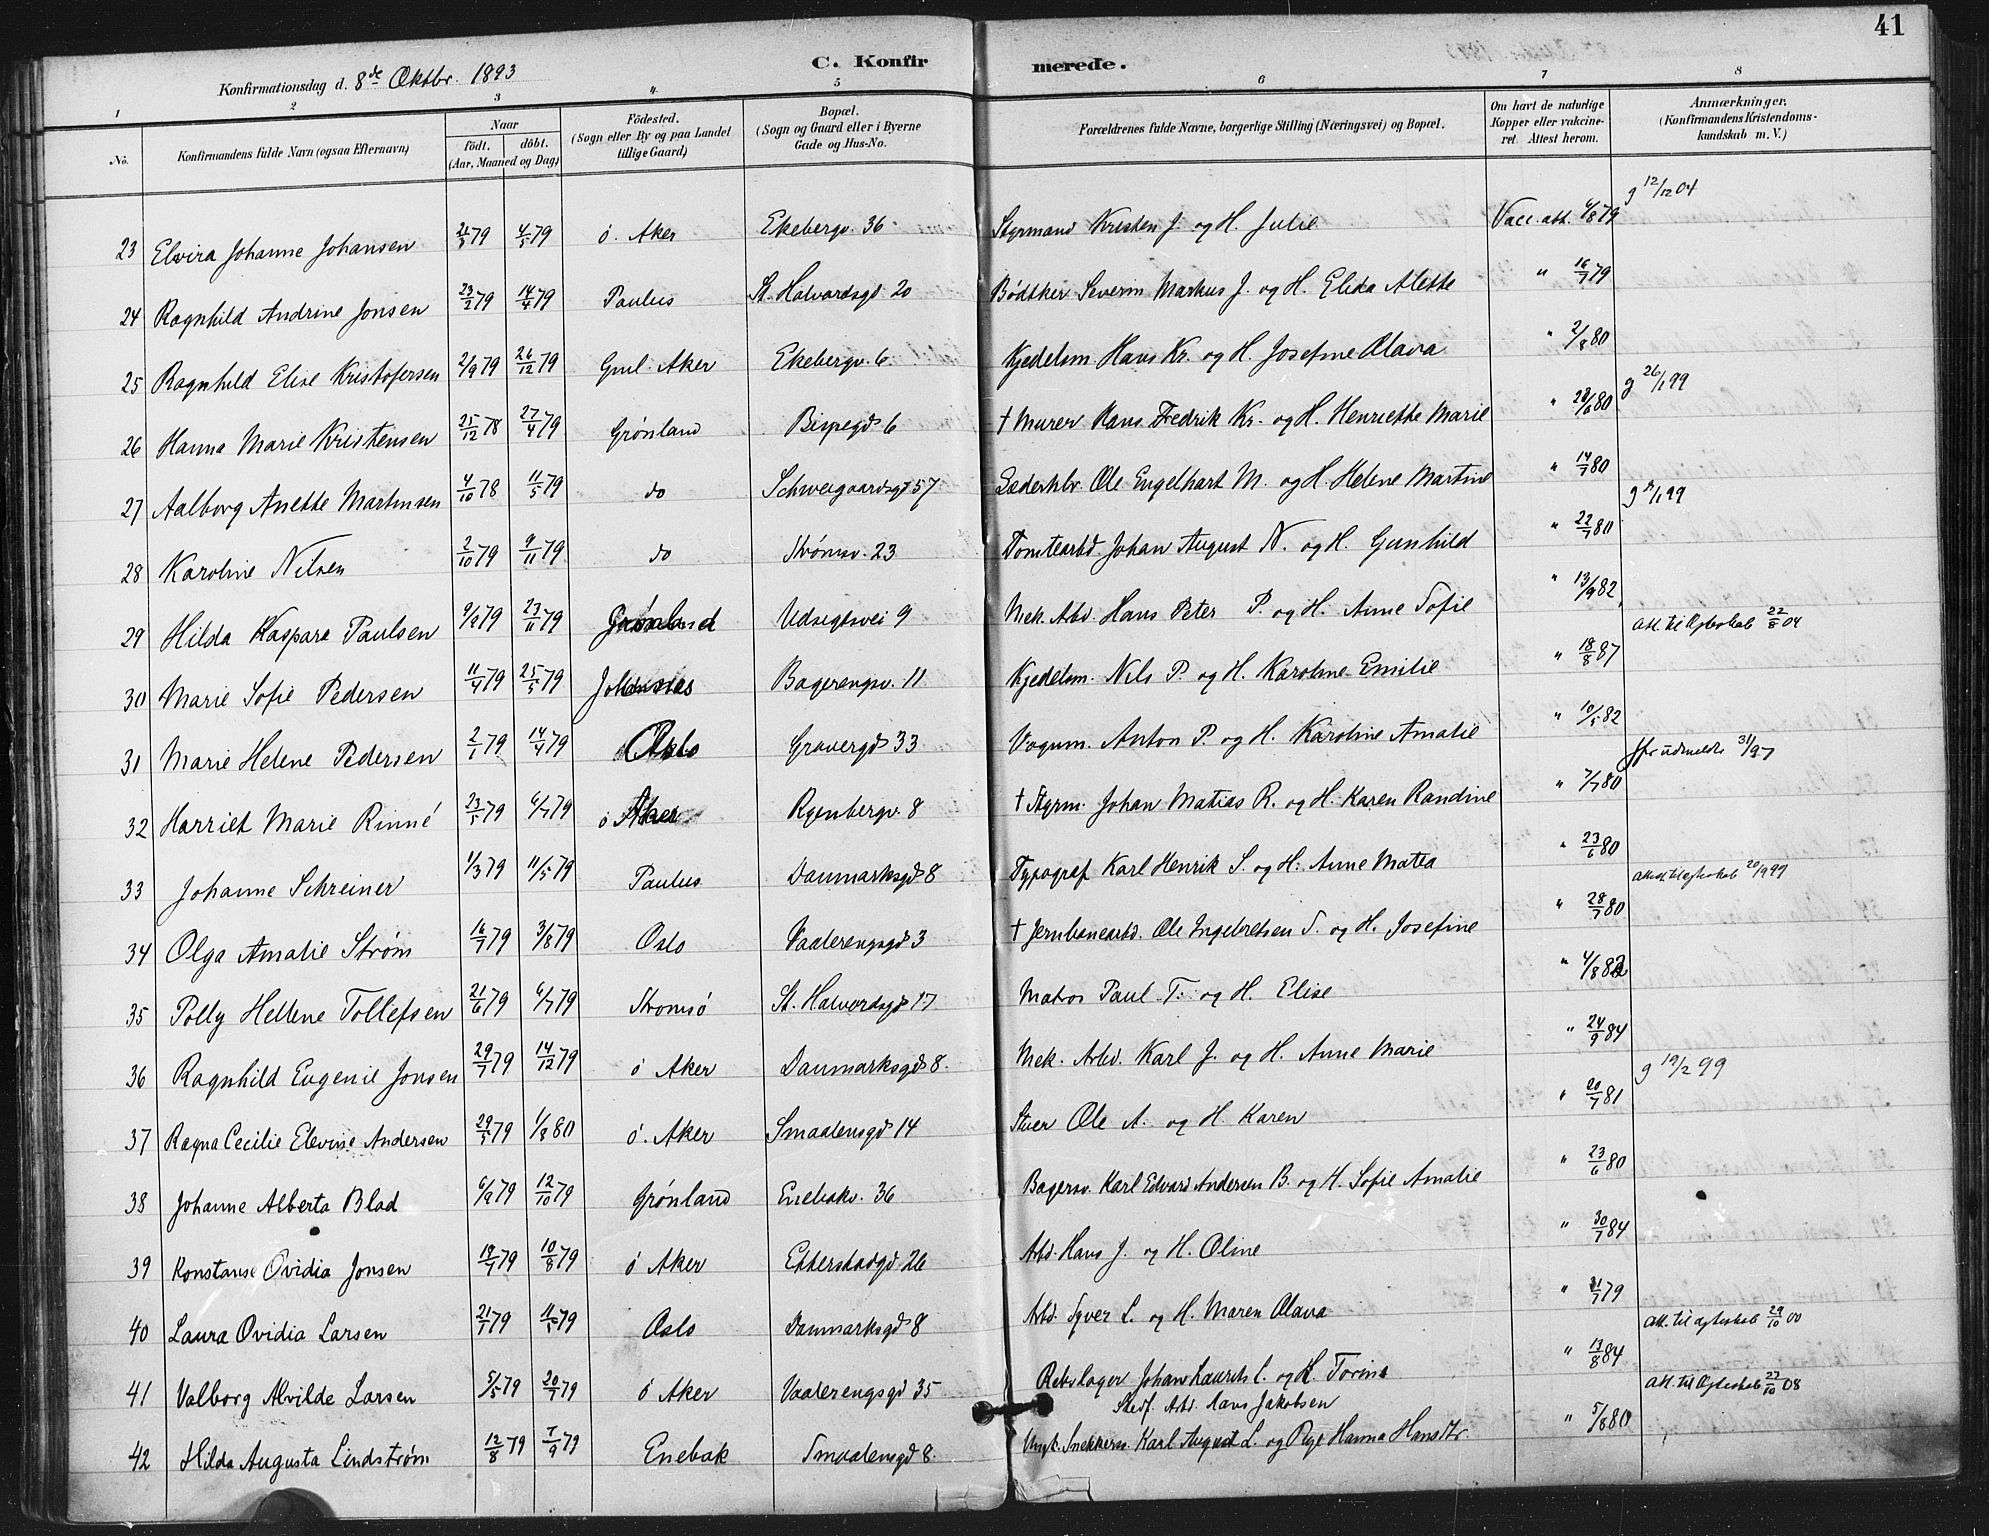 41
Konfirmationsdag d. 8de Oktbr. 1893
C. Konfirmerede.
1 2 3 4 5 6 7 8
No. Konfirmandens fulde Navn (ogsaa Efternavn) Naar födt. döbt. (Aar, Maaned og Dag) Födested. (Sogn eller By og paa Landet tillige Gaard) Bopæl. (Sogn og Gaard eller i Byerne Gade og Hus-No. Forældrenes fulde Navne, borgerlige Stilling (Næringsvei) og Bopæl. Om havt de naturlige Kopper eller vakcineret. Attest herom. Anmærkninger. (Konfirmandens Kristendomskundskab m. V.)
23 Elvira Johanne Johansen 79 4/5 79 ö. Aker Ekebergv. 36 Styrmand Kristen J. og H. Julie Vacc. att. 4/8 79 g 12/12 04
24 Ragnhild Andrine Jonsen 23/2 79 14/4 79 Paulus St. Halvardsgd 20 Bödtker Severin Markus J. og H. Elida Alette " 16/7 79
25 Ragnhild Elise Kristofersen 2/9 79 26/12 79 Gml. Aker Ekebergv. 6. Kjedelsm. Hans Kr. og H. Josefine Olava " 2/8 80
26 Hanna Marie Kristensen 25/12 78 27/4 79 Grönland Bispegd 6 † Murer Hans Fredrik Kr. og H. Henriette Marie " 80 g 26/1 99
27 Aalborg Anette Martinsen 4/10 78 11/5 79 do Schweigaardsgd 57 Læderhdr. Ole Engelhart M. og H. Helene Martine " 14/7 80
28 Karoline Nilsen 2/10 79 9/11 79 do Strömsv. 23 Tomtearbd. Johan August N. og H. Gunhild " 22/7 80 g 1/99
29 Hilda Kaspara Paulsen 9/9 79 23/11 79 Grönland Udsigtsvei 9 Mek. Arbd. Hans Peter P. og H. Anne Sofie " 13/9 82
30 Marie Sofie Pedersen 11/4 79 25/5 79 Johannes Bagerengsv. 11 Kjedelsm. Nils P. og H. Karoline Emilie " 18/8 87 att. til Ægteskab 22/8 04
31 Marie Helene Pedersen 2/1 79 14/4 79 Oslo Gravergd 33 Vognm. Anton P. og H. Karoline Amalie " 10/5 82
32 Harriet Marie Rinné 23/5 79 6/7 79 ö Aker Ryenbergv. 8 † Styrm. Johan Matias R. og H. Karen Randine " 7/7 80 udmeldt 3/1 97
33 Johanne Schreiner 1/3 79 11/5 79 Paulus Danmarksgd 8 Typograf Karl Henrik S. og H. Anne Matea " 23/6 80
34 Olga Amalie Ström 16/7 79 3/8 79 Oslo Vaalerengsgd 3 † Jernbanearbd. Ole Ingebretsen S. og H. Josefine " 28/7 80 attest til Ægteskab 20/9 99
35 Polly Hellene Tollefsen 21/6 79 6/7 79 Stromsö St. Halvordsgd 17 Matros Paul T. og H. Elise " 4/8 82
36 Ragnhild Eugenie Jonsen 29/7 79 14/12 79 ö Aker Danmarksgd 8. Mek. Arbd. Karl J. og H. Anne Marie " 24/9 84
37 Ragna Cecilie Elevine Andersen 29/5 79 1/8 80 ö. Aker Smaalensgd 14 Stuer Ole A. og H. Karen " 20/7 81 g 19/2 99
38 Johanne Alberta Blad 6/9 79 12/10 79 Grönland Enebakv. 36 Bagersv. Karl Edvard Andersen B. og H. Sofie Amalie " 23/6 80
39 Konstanse Ovidia Jonsen 79 10/8 79 ö Aker Etterstadgd 26 Arbd. Hans J. og H. Oline " 30/7 84
40 Laura Ovidia Larsen 21/1 79 11/5 79 Oslo Danmarksgd 8 Arbd. Syver L. og H. Maren Olava " 79
41 Valborg Alvilde Larsen 5/5 79 20/7 79 ö Aker Vaalerengsgd 35 Rebslager Johan Laurits L. og H. Torine " 13/8 84 att. til Ægteskab 29/10 00
Stedf. Arbd. Hans Jakobsen
42 Hilda Augusta Lindström 12/8 79 7/9 79 Enebak Smaalensgd 8. Ungk. Snekkersv. Karl August L. og Pige Hanna Hansdtr. " 5/8 80 att. til Ægteskab 27/10 08